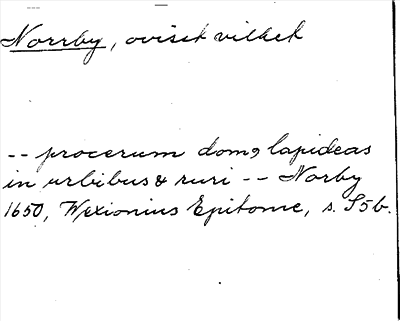 Norrby, ovisst vilket
-- procerum domꝰ lapideas
in urbibus & ruri -- Norby
1650, Wexionius Epitome, s. S5b.